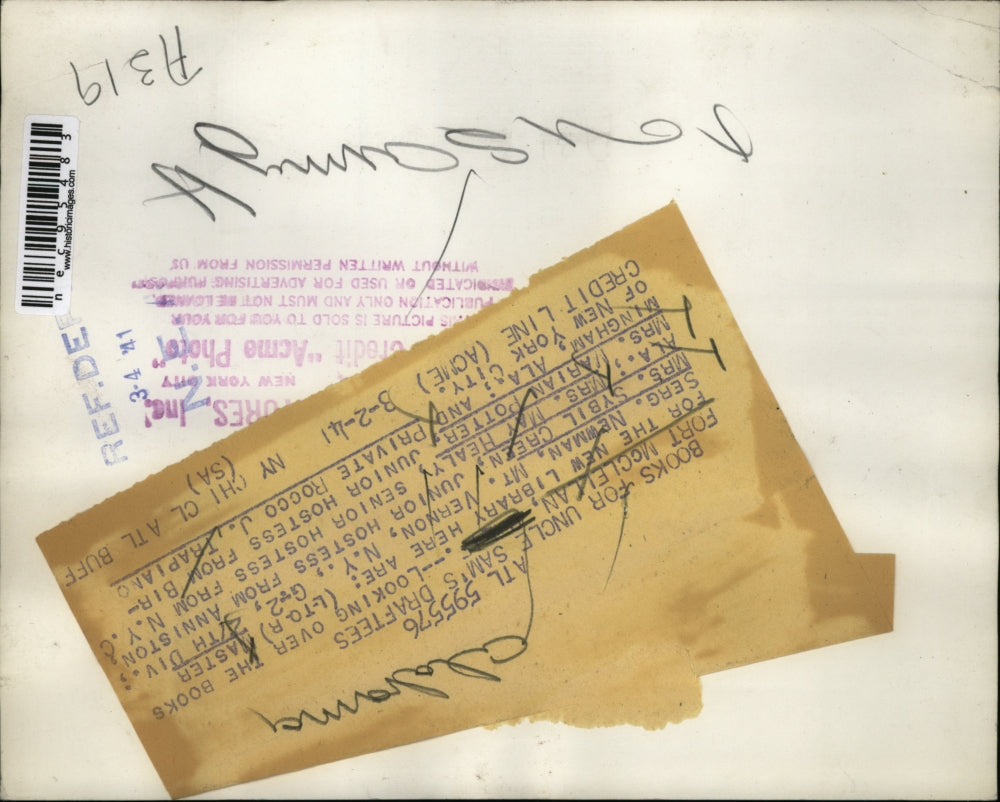 Alabama
595576
ATL
BOOKS FOR UNCLE SAM'S DRAFTEES
FORT McCLELLAN, --LOOKING OVER THE BOOKS
FOR THE NEW LIBRARY HERE, ARE: (L-TO-R) MASTER
SERG. NEWMAN, MT. VERNON, N.Y.; G-2, 27TH DIV.;
MRS. SIBIL GREEN, JUNIOR HOSTESS FROM ANNISTON,
ALA.; MAY HEALY SENIOR HOSTESS FROM N.Y.C
MRS. VARIAN POTTER, JUNIOR HOSTESS FROM BIR-
MINGHAM, ALA; AND PRIVATE ROCCO J. TRAPIANO
OF NEW YORK CITY.
CREDIT LINE (ACME) 3-2-41 NY CHI CL ATL BUFF
(SA)
TURES, Inc.
NEW YORK CITY
Credit "Acme Photo"
THIS PICTURE IS SOLD TO YOU FOR YOUR
PUBLICATION ONLY AND MUST NOT BE LOANED
SYNDICATED OR USED FOR ADVERTISING PURPOSES
WITHOUT WRITTEN PERMISSION FROM US
REF. DE
3-4-41
N.
U S Army
A319
nec95483
www.historicimages.com